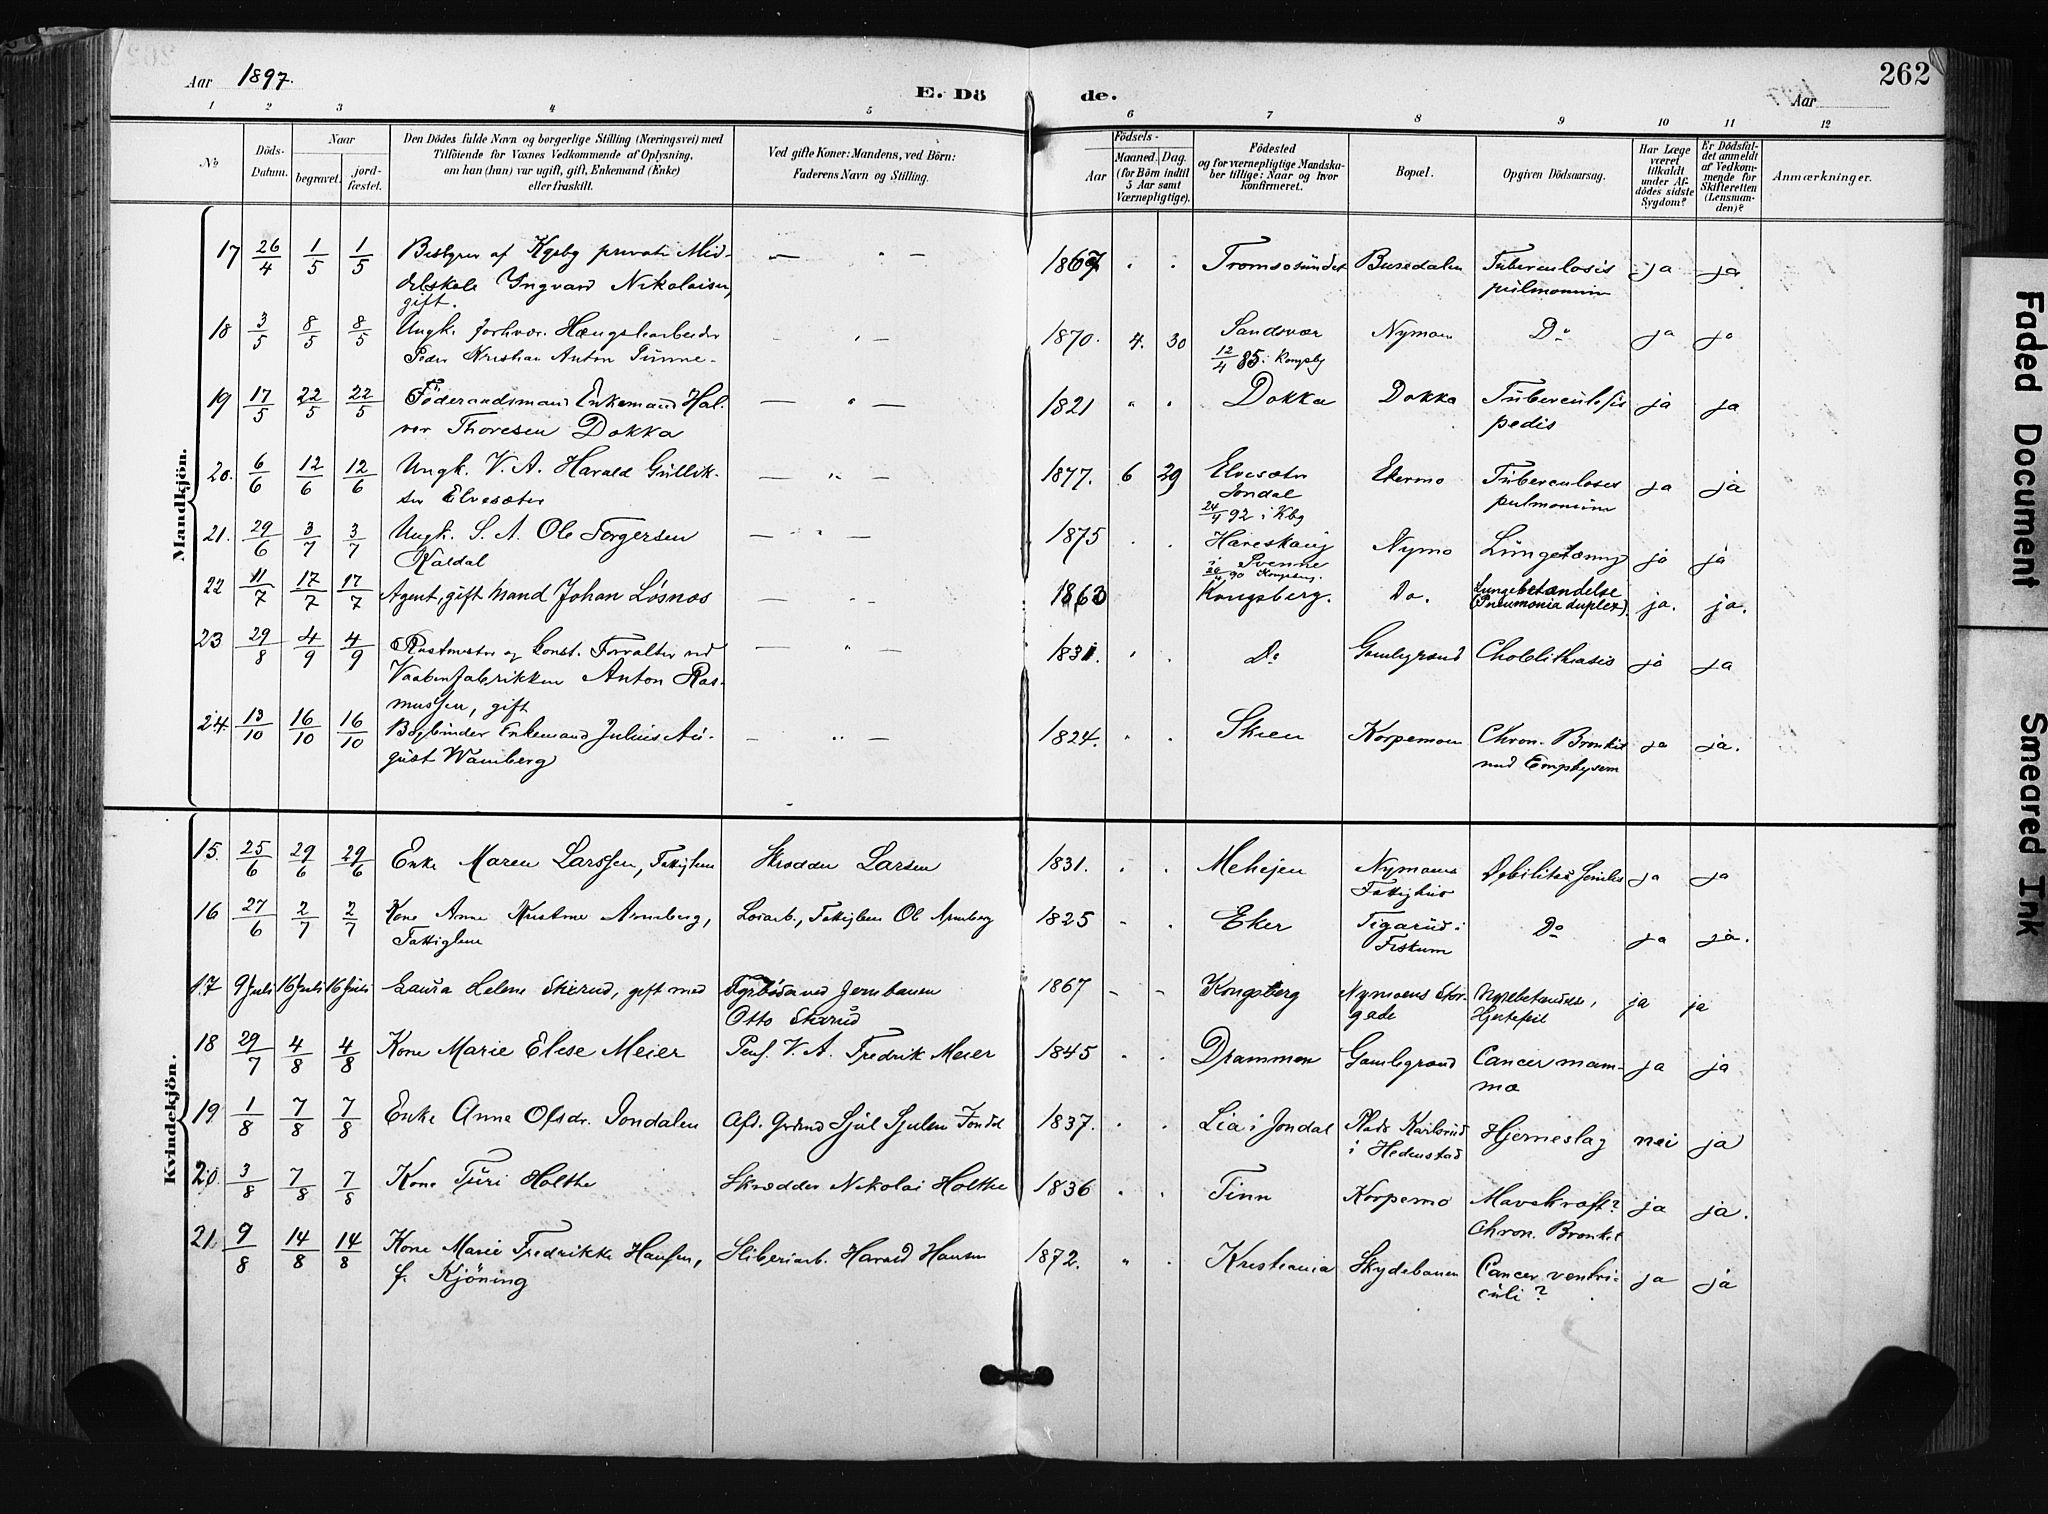 Aar 1897.
E. Dö de.
Aar
262
1 2 3 4 5 6 7 8 9 10 11 12
No
Döds-Datum.
Naar
begravet.
jordfæstet.
Den Dödes fulde Navn og borgerlige Stilling (Næringsvei) med
Tilföiende for Voxnes Vedkommende af Oplysning,
om han (hun) var ugift, gift, Enkemand (Enke)
eller fraskilt.
Ved gifte Koner: Mandens, ved Börn:
Faderens Navn og Stilling.
Födsels-
Aar
Maaned. Dag.
(for Börn indtil
5 Aar samt
Værnepligtige).
Födested
og for værnepligtige Mandska-
ber tillige: Naar og hvor
Konfirmeret.
Bopæl.
Opgiven Dödsaarsag.
Har Læge
været
tilkaldt
under Af-
dödes sidste
Sygdom?
Er Dödsfal-
det anmeldt
af Vedkom-
mende for
Skifteretten
(Lensman-
den)?
Anmærkninger.
Mandkjön.
17 26/4 1/5 1/5 Bestyrer af Kgsbg private Mid- — " — 1867 " " Tromsøsundet Busedalen Tuberculosis ja ja
delskole Yngvard Nikolaisen, pulmonum
gift.
18 3/5 8/5 8/5 Ungk. forhvær. Hængslearbeider - " - 1870. 4. 30 Sandsvær Nymoen Do ja ja
Peder Kristian Anton Tinne- 12/4 85 i Kongsbg
19 17/5 22/5 22/5 Föderaadsmand Enkemand Hal- — " — 1821 " " Dokka Dokka Tuberculosis ja ja
vor Thoresen Dokka pedis
20. 6/6 12/6 12/6 Ungk. V. A. Harald Gullik- — " — 1877. 6 29 Elvesæter Etermo Tuberculosis ja ja
sen Elvesæter Jondal pulmonum
24/4 92 i Kbg
21. 29/6 3/7 3/7 Ungk. S. A. Ole Torgersen — " — 1875 . . Hareskaug Nymo Lungetæring ja ja
Kaldal i Svenne
90 Kongsberg.
22 11/7 17/7 17/7 Agent, gift Mand Johan Løsnæs — " — 1863 Kongsberg. Do. Lungebetændelse ja. ja.
(Pneumonia duplex).
23 29/8 4/9 4/9 Rustmester og Const. Forvalter ved — " — 1831. " . Do Gamlegrænd Cholelithiasis ja ja
Vaabenfabrikken Anton Ras-
mussen, gift
24. 13/10 16/10 16/10 Bogbinder Enkemand Julius Au- — " — 1824. " . Skien Korpemoen Chron. Bronkit ja ja.
gust Wamberg med Emphysem
Kvindekjön.
15. 25/6 29/6 29/6 Enke Maren Larssen, Fattiglem Skrædder Larsen 1831. " . Mehejen Nymoens Debilitas senilis ja ja
Fattighus
16 27/6 2/7 2/7 Kone Anne Kristine Arneberg, Løsarb., Fattiglem Ole Arneberg 1825 - . Eker Tigarud i Do ja ja.
Fattiglem Fiskum
17 9 Juli 16 Juli 16 Juli Laura Helene Skirud, gift med Fyrbøder ved Jernbanen 1867 - - Kongsberg Nymoens Stor- Nyrebetændelse, ja ja
Otto Skirud gade Hjertefeil
18 29/7 4/8 4/8 Kone Marie Elise Meier Pens. V. A. Fredrik Meier 1845 " . Drammen Gamlegrænd Cancer mam- ja ja
mæ
19. 1/8 7/8 7/8 Enke Anne Olsdr. Jondalen Afd. Grdmd Sjul Sjulsen Jondal 1837. . . Lia i Jondal Plads Karlsrud Hjerneslag nei ja
i Hedenstad
20. 3/8 7/8 7/8 Kone Turi Holthe Skrædder Nikolai Holthe 1836 . . Tinn Korpemo Mavekræft? ja ja.
Chron. Bronkit
21. 9/8 14/8 14/8 Kone Marie Fredrikke Hansen, Sliberiarb. Harald Hansen 1872. " . Kristiania Skydebanen Cancer ventri- ja ja
f. Kjöning culi?
Faded Document
Smeared Ink